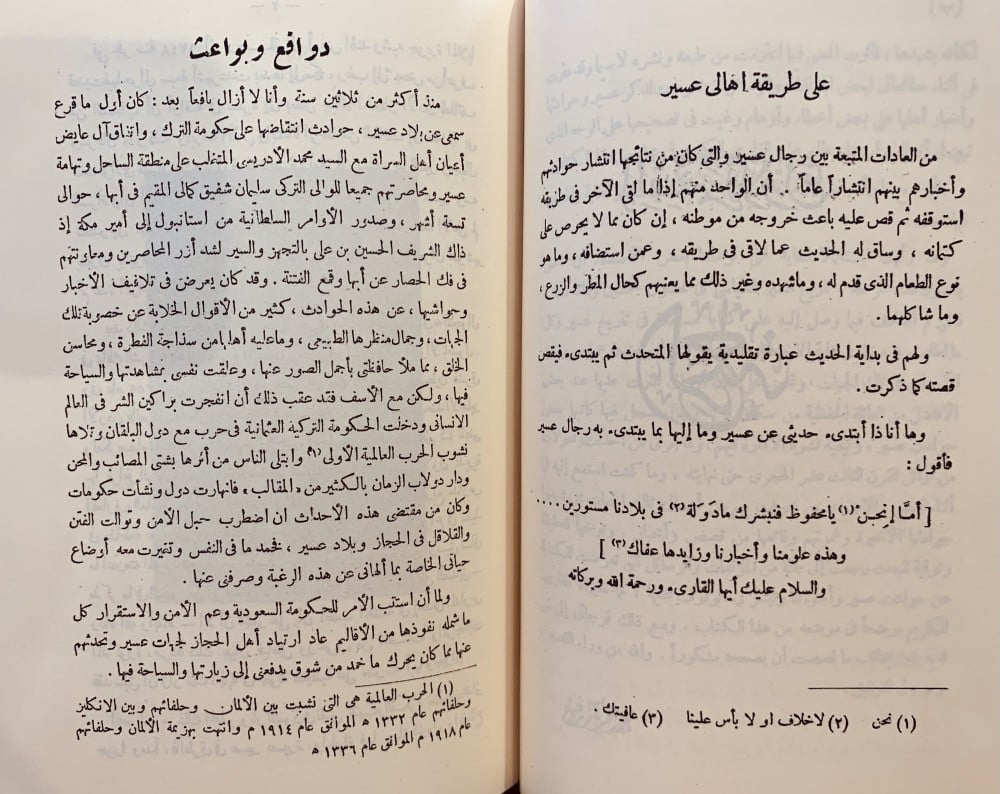 على طريقة اهالى عسير
من العادات المتبعة بين رجال عسير والتى كان من نتائجها انتشار حوادثهم
وأخبارهم بينهم انتشاراً عاماً .. أن الواحد منهم إذا ما لقى الآخر فى طريقه
استوقفه ثم قص عليه باعث خروجه من موطنه ، إن كان بما لا يحرص على
كتمانه ، وساق له الحديث عما لاقى فى طريقه ، وعمن استضافه ، وما هو
نوع الطعام الذى قدم له ، وما شهده وغير ذلك مما يعنيهم كحال المطر والزرع ،
وما شاكلهما .
ولهم فى بداية الحديث عبارة تقليدية يقولها المتحدث ثم يبتدىء فيقص
قصته كما ذكرت .
وها أنا ذا أبتدىء حديثى عن عسير وما إليها بما يبتدىء به رجال عسير
فأقول :
[ أمَّا إنحِن (١) يا محفوظ فنبشرك مادَوكة (٢) فى بلادنا مستورين ....
وهذه علومنا وأخبارنا وزايدها عفاك (٣) ]
والسلام عليك أيها القارىء ورحمة الله وبركاته
(١) نحن (٢) لاخلاف او لا بأس علينا (٣) عافيتك .
دوافع وبواعث
منذ أكثر من ثلاثين سنة وأنا لا أزال يافعاً بعد : كان أول ما قرع
سمعى عن بلاد عسير ، حوادث انتقاضها على حكومة الترك ، واتفاق آل عايض
أعيان أهل السراة مع السيد محمد الأدريسى المتغلب على منطقة الساحل وتهامة
عسير ومحاصرتهم جميعا للوالى التركى سليمان شفيق كمالى المقيم فى أبها ، حوالى
تسعة أشهر ، وصدور الأوامر السلطانية من استانبول إلى أمير مكة إذ
ذاك الشريف الحسين بن على بالتجهز والسير لشد أزر المحاصرين ومعاونتهم
فى فك الحصار عن أبها وقمع الفتنة . وقد كان يعرض فى تلافيف الأخبار
وحواشيها ، عن هذه الحوادث ، كثير من الأقوال الخلابة عن خصوبة تلك
الجهات ، وجمال منظرها الطبيعى ، وما عليه أهلها من سذاجة الفطرة ، ومحاسن
الخلق ، مما ملأ حافظتى بأجمل الصور عنها ، وعلقت نفسى بمشاهدتها والسياحة
فيها ، ولكن مع الأسف فقد عقب ذلك أن انفجرت براكين الشر فى العالم
الانسانى ودخلت الحكومة التركية العثمانية فى حرب مع دول البلقان وتلاها
نشوب الحرب العالمية الأولى (١) وابتلى الناس من أثرها بشتى المصائب والمحن
ودار دولاب الزمان بالكثير من « المقالب » فانهارت دول ونشأت حكومات
وكان من مقتضى هذه الأحداث ان اضطرب حبل الأمن وتوالت الفتن
والقلاقل فى الحجاز وبلاد عسير ، فخمد ما فى النفس وتغيرت معه أوضاع
حياتى الخاصة بما ألهانى عن هذه الرغبة وصرفنى عنها .
ولما أن استتب الأمر للحكومة السعودية وعم الأمن والاستقرار كل
ما شمله نفوذها من الأقاليم عاد ارتياد أهل الحجاز لجهات عسير وتحدثهم
عنها بما كان يحرك ما خمد من شوق يدفعنى إلى زيارتها والسياحة فيها .
(١) الحرب العالمية هى التى نشبت بين الألمان وحلفائهم وبين الانكليز
وحلفائهم عام ١٣٣٢ ه الموافق عام ١٩١٤ م وانتهت بهزيمة الألمان وحلفائهم
عام ١٩١٨ م الموافق عام ١٣٣٦ ه